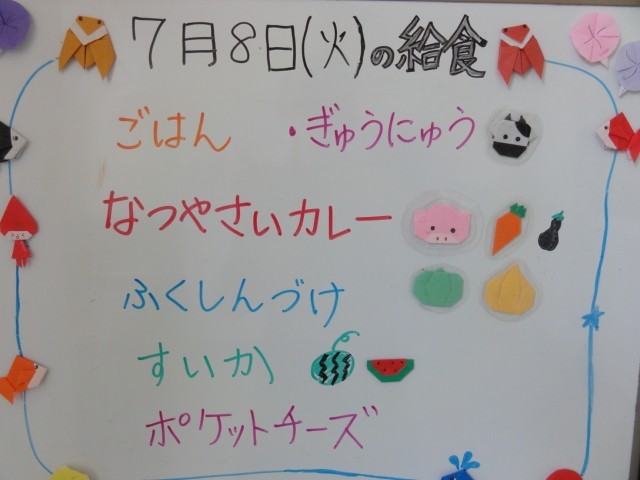 7月8日(火)の給食
ごはん ・ぎゅうにゅう
なつやさいカレー
ふくしんづけ
すいか
ポケットチーズ